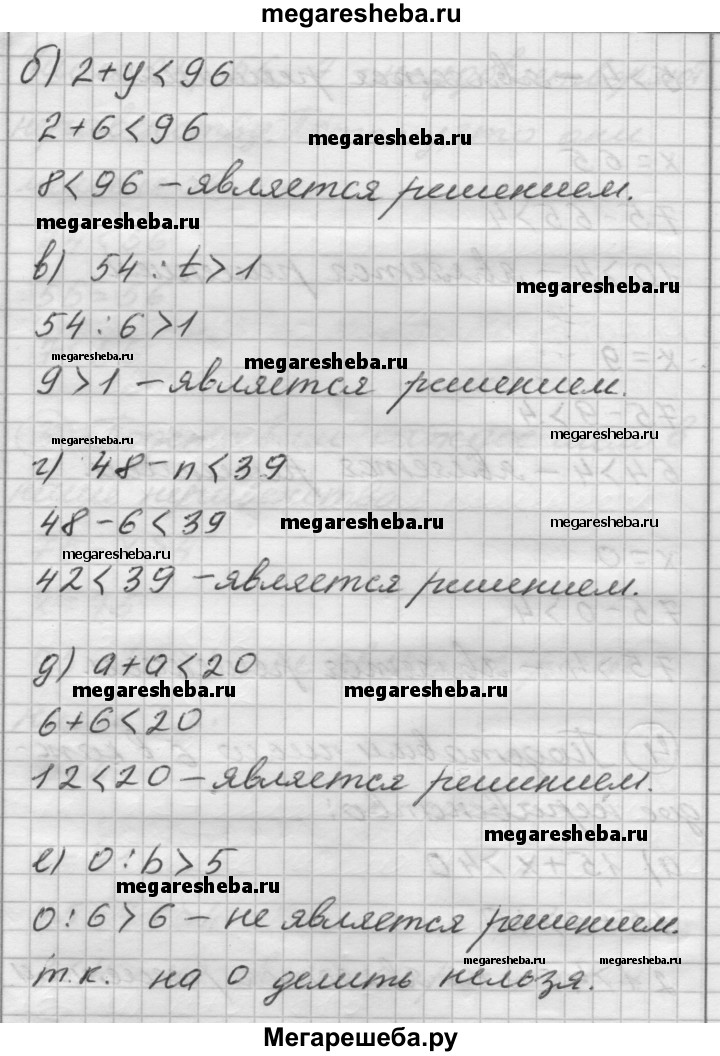 megaresheba.ru
б) 2+y<96
2+6<96
megaresheba.ru
8<96 – является решением.
megaresheba.ru
в) 54:t>1
megaresheba.ru
54:6>1
megaresheba.ru
megaresheba.ru
9>1 – является решением.
megaresheba.ru
megaresheba.ru
г) 48–n<39
48–6<39
megaresheba.ru
megaresheba.ru
megaresheba.ru
42<39 – является решением.
д) a+a<20
megaresheba.ru
megaresheba.ru
6+6<20
12<20 – является решением.
megaresheba.ru
е) 0:b>5
megaresheba.ru
0:6>6 – не является решением.
megaresheba.ru
megaresheba.ru
т.к. на 0 делить нельзя.
Мегарешеба.ру